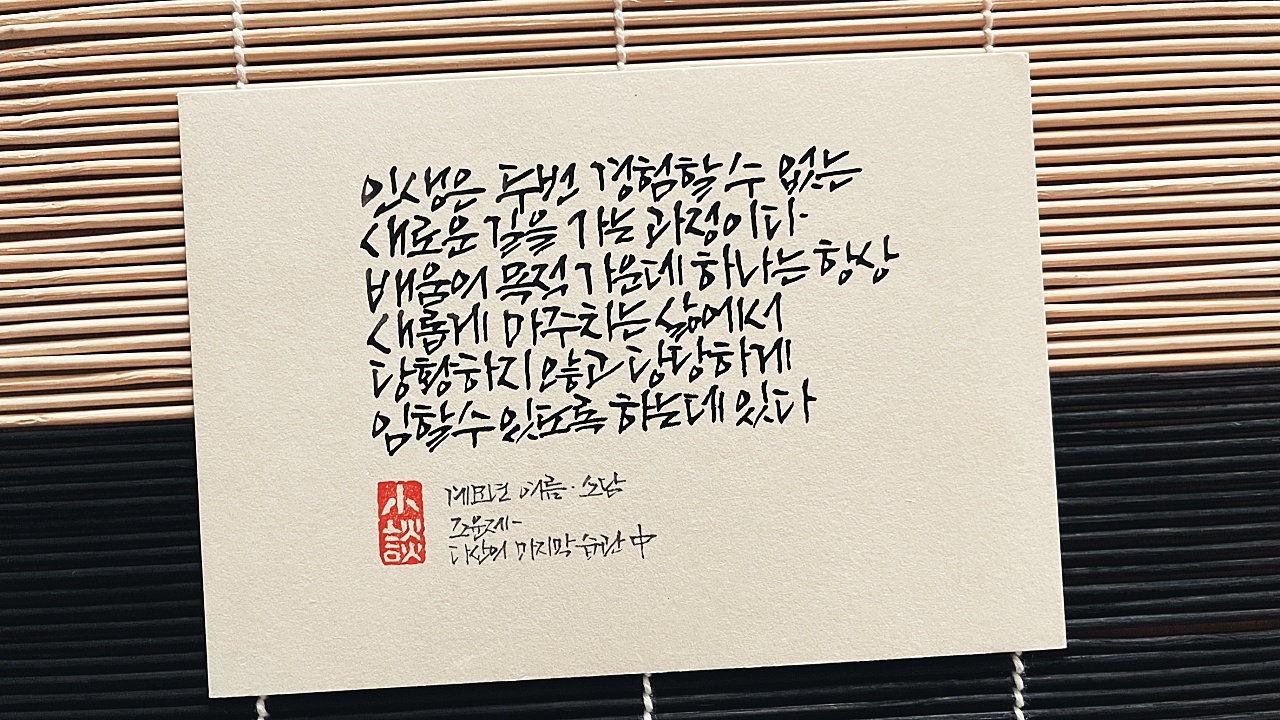 인생은 두번 경험할 수 없는
새로운 길을 가는 과정이다.
배움의 목적 가운데 하나는 항상
새롭게 마주치는 삶에서
당황하지 않고 당당하게
임할 수 있도록 하는데 있다
小談
계묘년 여름. 소담
조윤제-
다산의 마지막 습관 中